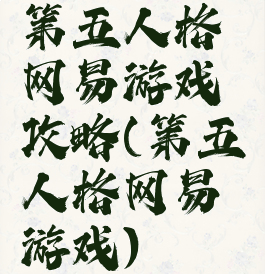 第五人格
网易游戏
攻略(第五
人格网易
游戏)